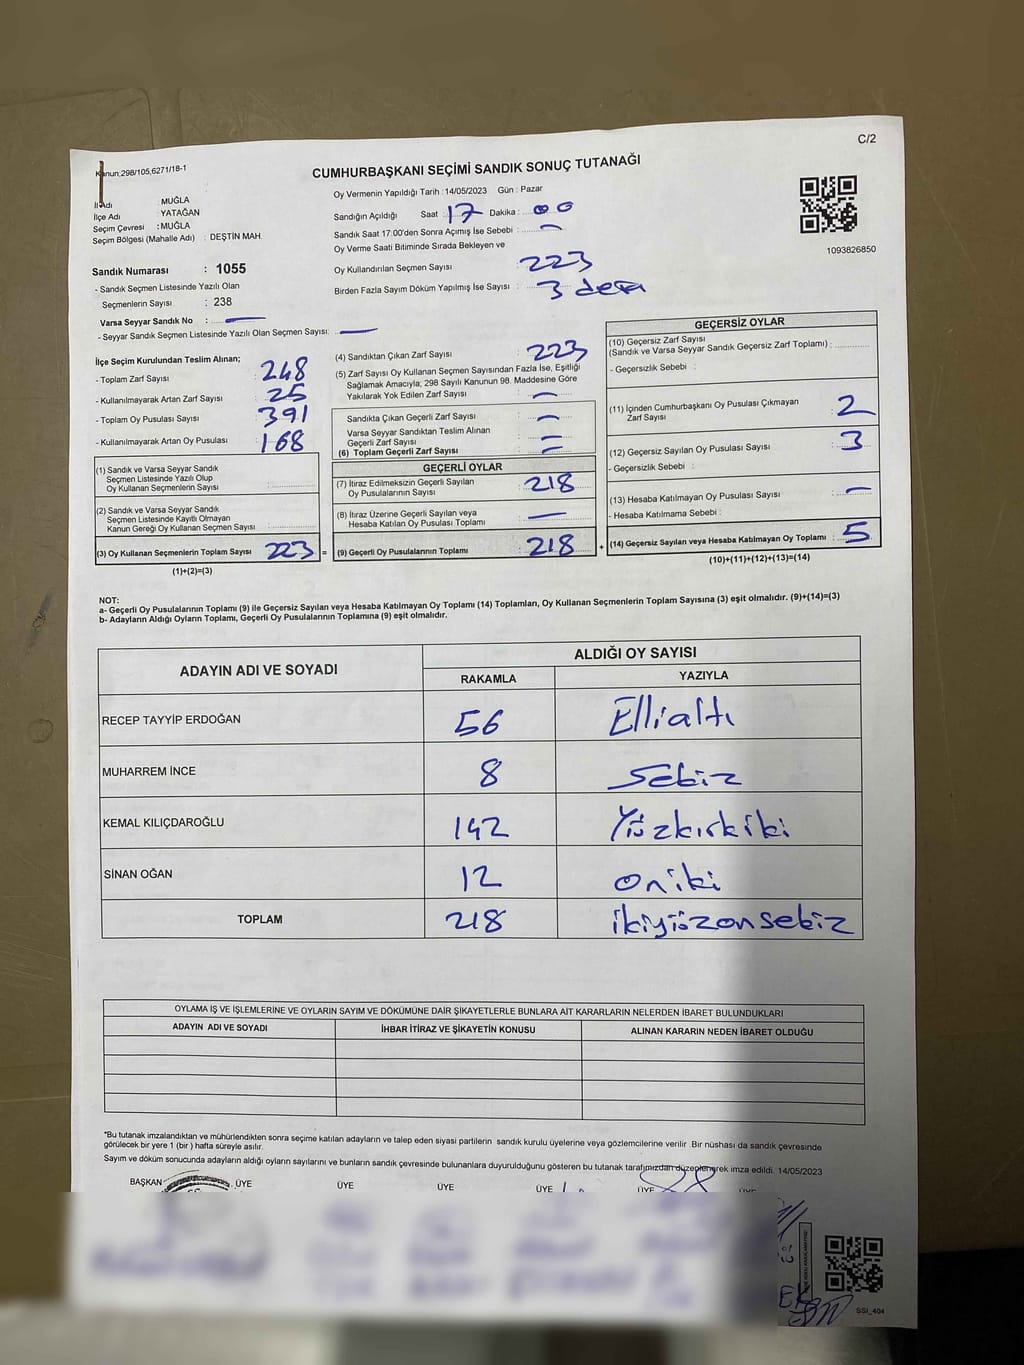 C/2
Kanun;298/105,6271/18-1
CUMHURBAŞKANI SEÇİMİ SANDIK SONUÇ TUTANAĞI
İl Adı : MUĞLA
İlçe Adı : YATAĞAN
Seçim Çevresi : MUĞLA
Seçim Bölgesi (Mahalle Adı) : DEŞTİN MAH.
Oy Vermenin Yapıldığı Tarih : 14/05/2023 Gün : Pazar
Sandığın Açıldığı Saat : 17 Dakika : 00
Sandık Saat 17:00'den Sonra Açımış İse Sebebi : —
Oy Verme Saati Bitiminde Sırada Bekleyen ve
Oy Kullandırılan Seçmen Sayısı : 223
Birden Fazla Sayım Döküm Yapılmış İse Sayısı : 3 defa
1093826850
Sandık Numarası : 1055
- Sandık Seçmen Listesinde Yazılı Olan
Seçmenlerin Sayısı : 238
Varsa Seyyar Sandık No : —
- Seyyar Sandık Seçmen Listesinde Yazılı Olan Seçmen Sayısı: —
İlçe Seçim Kurulundan Teslim Alınan;
- Toplam Zarf Sayısı : 248
- Kullanılmayarak Artan Zarf Sayısı : 25
- Toplam Oy Pusulası Sayısı : 391
- Kullanılmayarak Artan Oy Pusulası : 168
(1) Sandık ve Varsa Seyyar Sandık
Seçmen Listesinde Yazılı Olup
Oy Kullanan Seçmenlerin Sayısı :
(2) Sandık ve Varsa Seyyar Sandık
Seçmen Listesinde Kayıtlı Olmayan
Kanun Gereği Oy Kullanan Seçmen Sayısı :
(3) Oy Kullanan Seçmenlerin Toplam Sayısı : 223 =
(1)+(2)=(3)
(4) Sandıktan Çıkan Zarf Sayısı : 223
(5) Zarf Sayısı Oy Kullanan Seçmen Sayısından Fazla İse, Eşitliği
Sağlamak Amacıyla, 298 Sayılı Kanunun 98. Maddesine Göre
Yakılarak Yok Edilen Zarf Sayısı : —
Sandıkta Çıkan Geçerli Zarf Sayısı : —
Varsa Seyyar Sandıktan Teslim Alınan
Geçerli Zarf Sayısı : —
(6) Toplam Geçerli Zarf Sayısı : —
GEÇERLİ OYLAR
(7) İtiraz Edilmeksizin Geçerli Sayılan
Oy Pusulalarının Sayısı : 218
(8) İtiraz Üzerine Geçerli Sayılan veya
Hesaba Katılan Oy Pusulası Toplamı : —
(9) Geçerli Oy Pusulalarının Toplamı : 218 +
GEÇERSİZ OYLAR
(10) Geçersiz Zarf Sayısı
(Sandık ve Varsa Seyyar Sandık Geçersiz Zarf Toplamı) :
- Geçersizlik Sebebi :
(11) İçinden Cumhurbaşkanı Oy Pusulası Çıkmayan
Zarf Sayısı : 2
(12) Geçersiz Sayılan Oy Pusulası Sayısı : 3
- Geçersizlik Sebebi :
(13) Hesaba Katılmayan Oy Pusulası Sayısı : —
- Hesaba Katılmama Sebebi :
(14) Geçersiz Sayılan veya Hesaba Katılmayan Oy Toplamı : 5
(10)+(11)+(12)+(13)=(14)
NOT:
a- Geçerli Oy Pusulalarının Toplamı (9) ile Geçersiz Sayılan veya Hesaba Katılmayan Oy Toplamı (14) Toplamları, Oy Kullanan Seçmenlerin Toplam Sayısına (3) eşit olmalıdır. (9)+(14)=(3)
b- Adayların Aldığı Oyların Toplamı, Geçerli Oy Pusulalarının Toplamına (9) eşit olmalıdır.
ADAYIN ADI VE SOYADI ALDIĞI OY SAYISI
RAKAMLA YAZIYLA
RECEP TAYYİP ERDOĞAN 56 Ellialtı
MUHARREM İNCE 8 Sekiz
KEMAL KILIÇDAROĞLU 142 Yüzkırkiki
SİNAN OĞAN 12 oniki
TOPLAM 218 ikiyüzonsekiz
OYLAMA İŞ VE İŞLEMLERİNE VE OYLARIN SAYIM VE DÖKÜMÜNE DAİR ŞİKAYETLERLE BUNLARA AİT KARARLARIN NELERDEN İBARET BULUNDUKLARI
ADAYIN ADI VE SOYADI İHBAR İTİRAZ VE ŞİKAYETİN KONUSU ALINAN KARARIN NEDEN İBARET OLDUĞU
*Bu tutanak imzalandıktan ve mühürlendikten sonra seçime katılan adayların ve talep eden siyasi partilerin sandık kurulu üyelerine veya gözlemcilerine verilir .Bir nüshası da sandık çevresinde
görülecek bir yere 1 (bir ) hafta süreyle asılır.
Sayım ve döküm sonucunda adayların aldığı oyların sayılarını ve bunların sandık çevresinde bulunanlara duyurulduğunu gösteren bu tutanak tarafımızdan düzenlenerek imza edildi. 14/05/2023
BAŞKAN ÜYE ÜYE ÜYE ÜYE ÜYE ÜYE
SSI_404